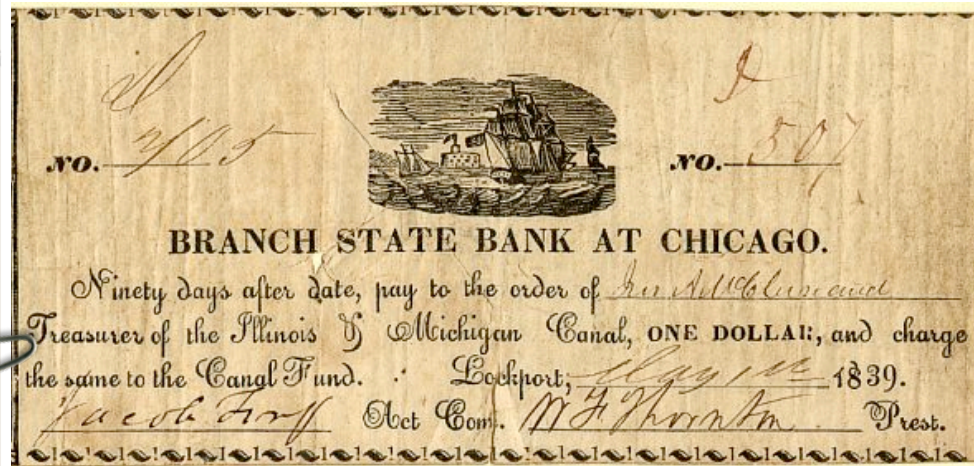 NO. 2105 NO. 507
BRANCH STATE BANK AT CHICAGO.
Ninety days after date, pay to the order of Jno A McClernand
Treasurer of the Illinois & Michigan Canal, ONE DOLLAR, and charge
the same to the Canal Fund. Lockport, May 1839.
Jacob Fry Act Com. W F Thornton Prest.